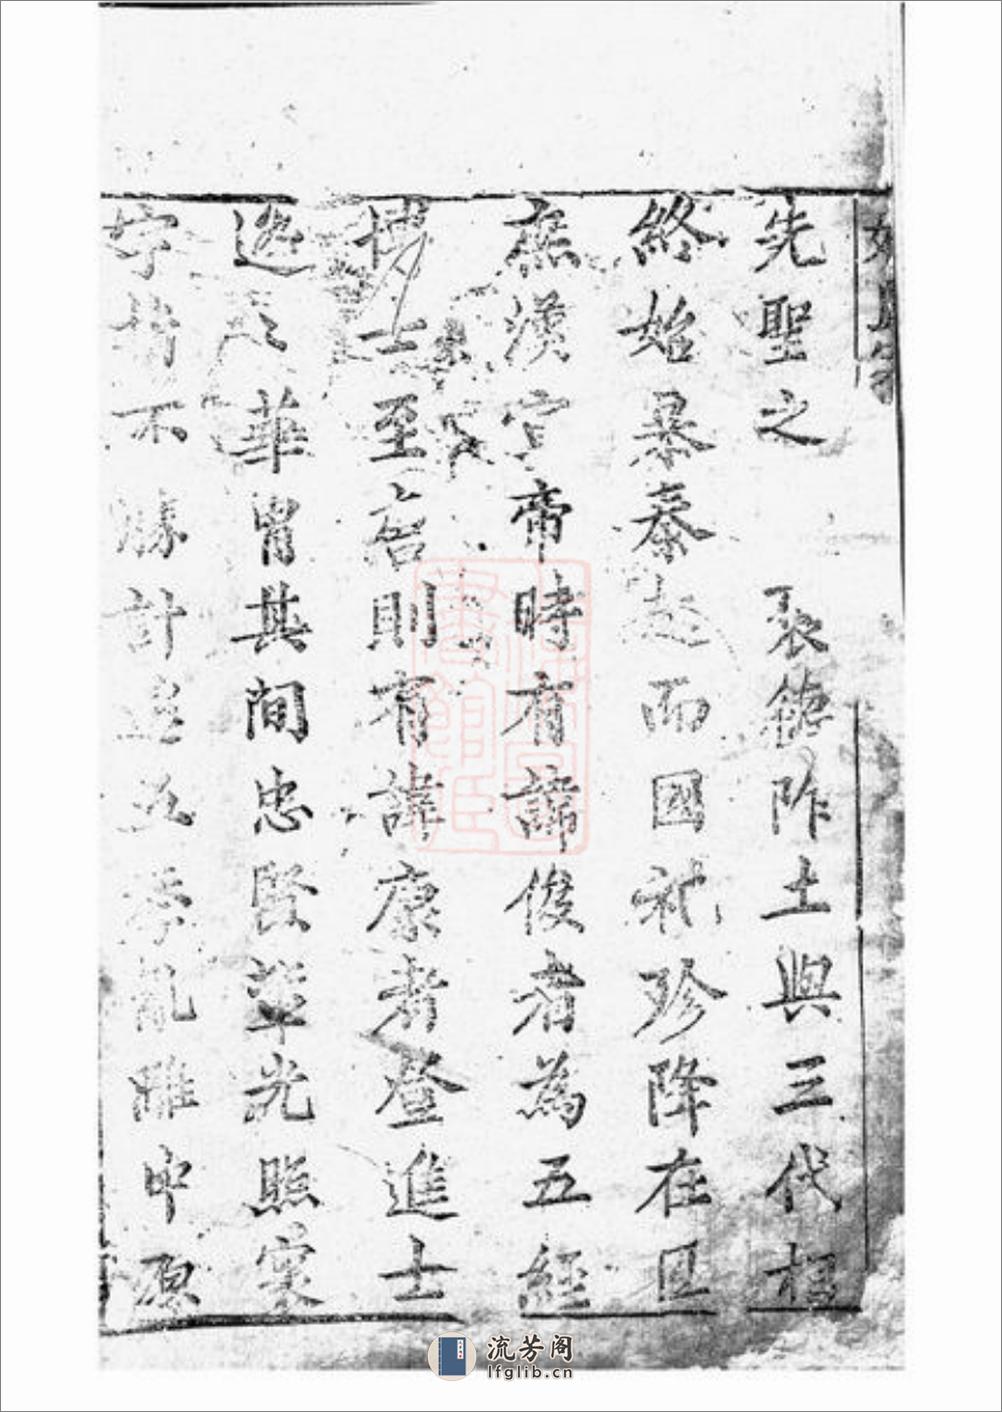 先聖之裔德胙土與三代相
終始暴秦起而國祀殄降在
庶漢宣帝時有諱俊者為五經
博士至唐則有諱康者登進士
華胄其間忠賢輩光照寰
宇不勝計亂雖中原
流芳阁
lfglib.cn